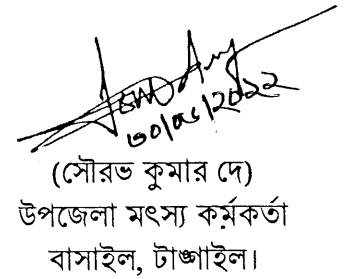 ৩০/০৫/২০২২
(সৌরভ কুমার দে)
উপজেলা মৎস্য কর্মকর্তা
বাসাইল, টাঙ্গাইল।